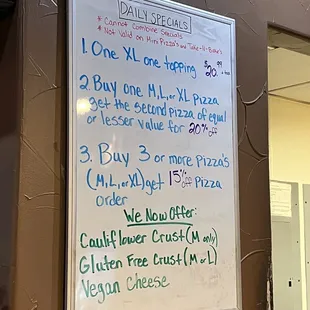 DAILY SPECIALS
* Cannot combine Specials
* Not Valid on Mini Pizza's and Take-N-Bake's
1. One XL one topping $20.99 + tax
2. Buy one M, L, or XL pizza
get the second pizza of equal
or lesser value for 20% off
3. Buy 3 or more pizzas
(M, L, or XL) get 15% off pizza
order
We Now Offer:
Cauliflower Crust (M only)
Gluten Free Crust (M or L)
Vegan Cheese